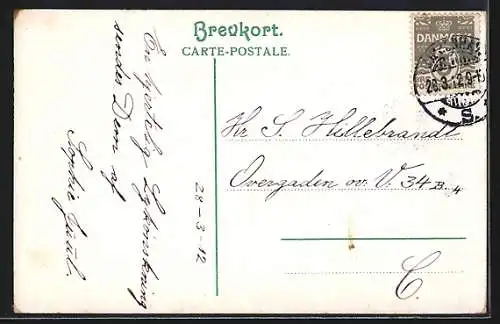 Brevkort.
CARTE-POSTALE.
En hjertelig Lykønskning
sendes Dem af
Sophie Juul.
28-3-12
Hr S. Hillebrandt
Overgaden ov. V. 34 B. 4
C.
DANMARK
28.3.12.9-
S